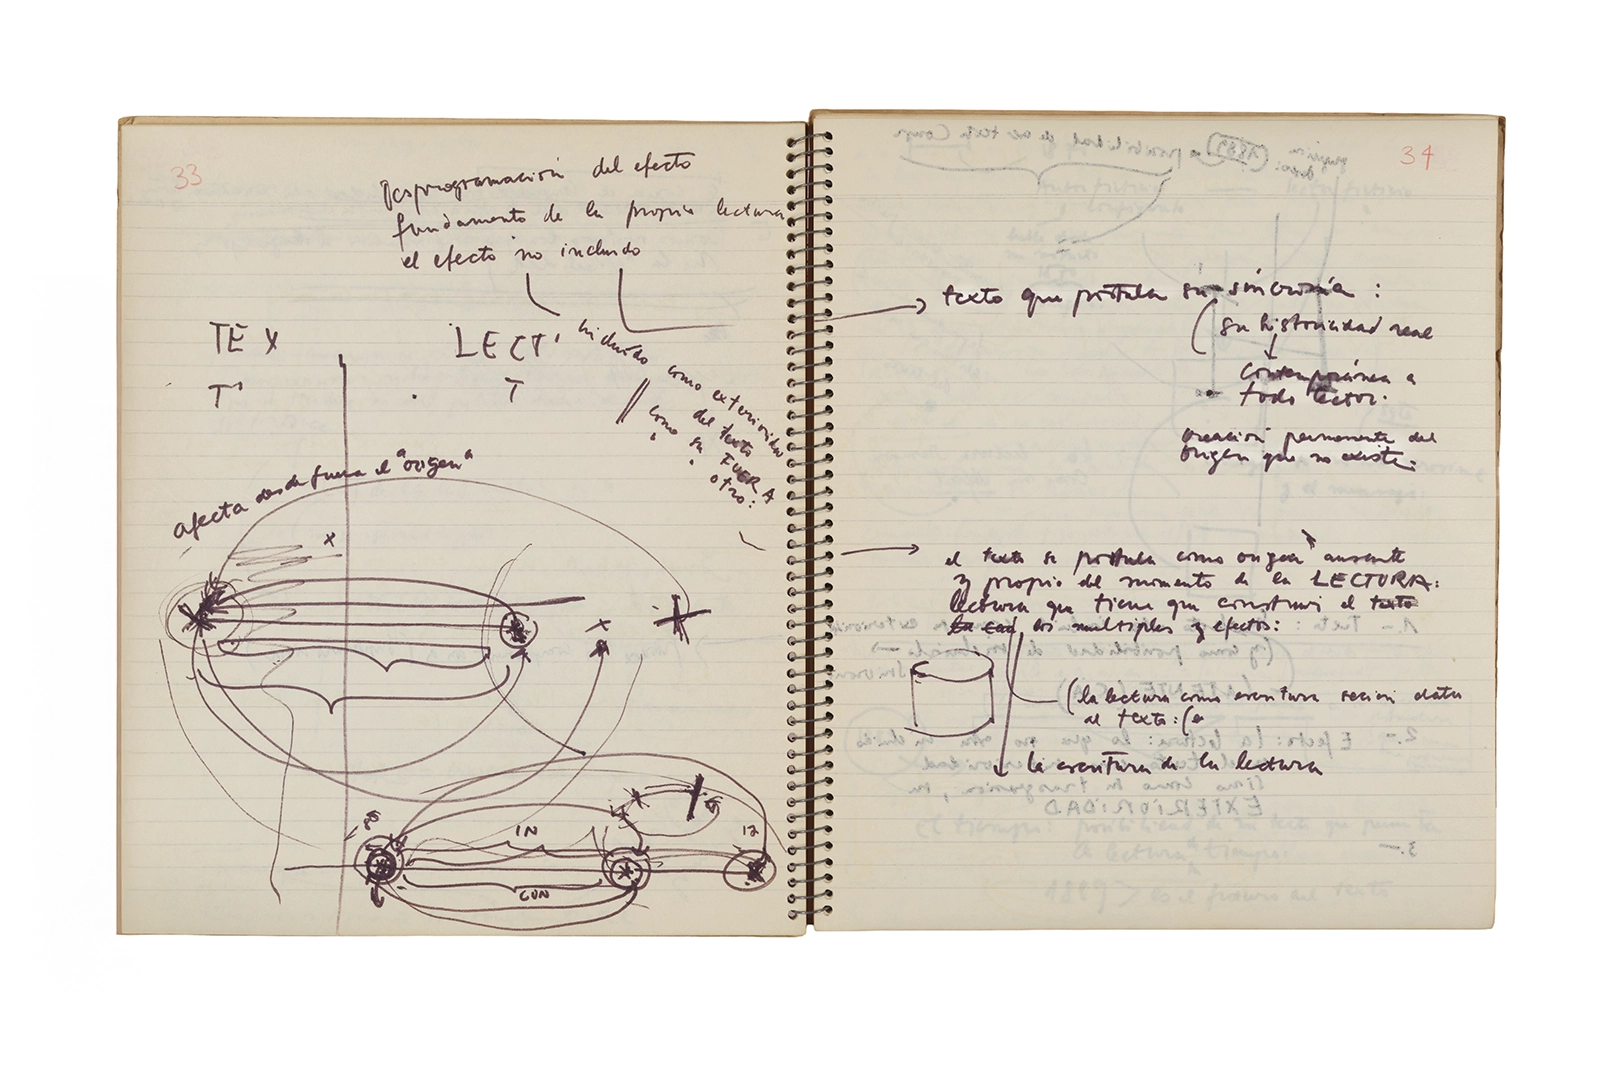 33
Desprogramación del efecto
fundamento de la propia lectura
el efecto no incluido
TEX
LECT'
T'
T
incluido como exterioridad
del texto
como su FUERA
otro:
afecta desde fuera el "origen"
x
IN
CON
12
34
texto que postula su sincronía :
(su historicidad real
contemporánea a
todo lector.
creación permanente del
origen que no existe.
el texto se postula como origen ausente
y propio del momento de la LECTURA:
lectura que tiene que construir el texto
los multiples y efectos:
(la lectura como escritura
al texto: (
la escritura de la lectura